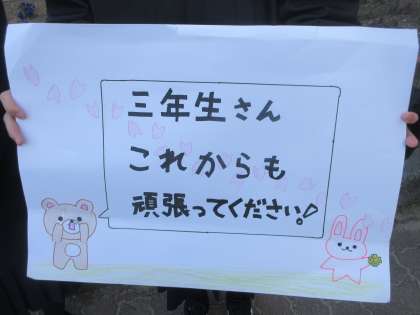 三年生さん
これからも
頑張ってください!